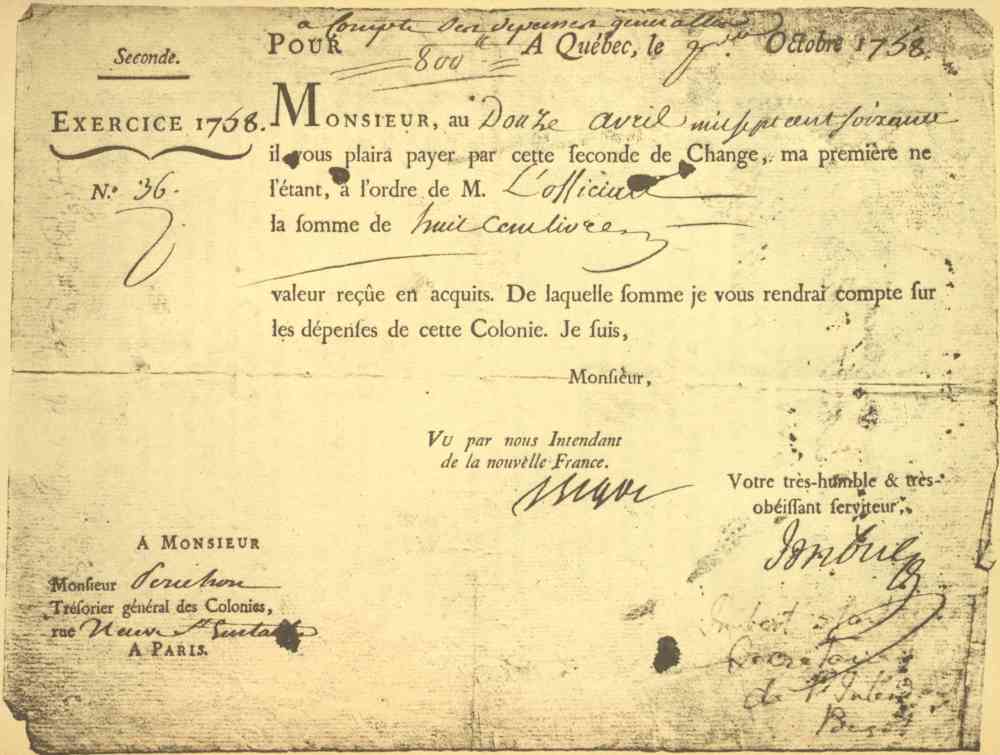 a Compte des depenses generalles
Seconde.
POUR 800ᵗᵗ A Québec, le Octobre 1758.
EXERCICE 1758.
MONSIEUR, au Douze avril mil sept cent soixante
il vous plaira payer par cette ſeconde de Change, ma première ne
N.º 36.
l'étant, à l'ordre de M. L'officieux
la ſomme de huit cent livres
valeur reçûe en acquits. De laquelle ſomme je vous rendrai compte ſur
les dépenſes de cette Colonie. Je ſuis,
Monſieur,
VU par nous Intendant
de la nouvelle France.
Bigot
Votre très-humble & très-
obéiſſant ſerviteur,
Imbert
A MONSIEUR
Monſieur Perichon
Tréſorier général des Colonies,
rue Neuve St Eustache
A PARIS.
Imbert
Secretaire
de l'Intend
Bigot